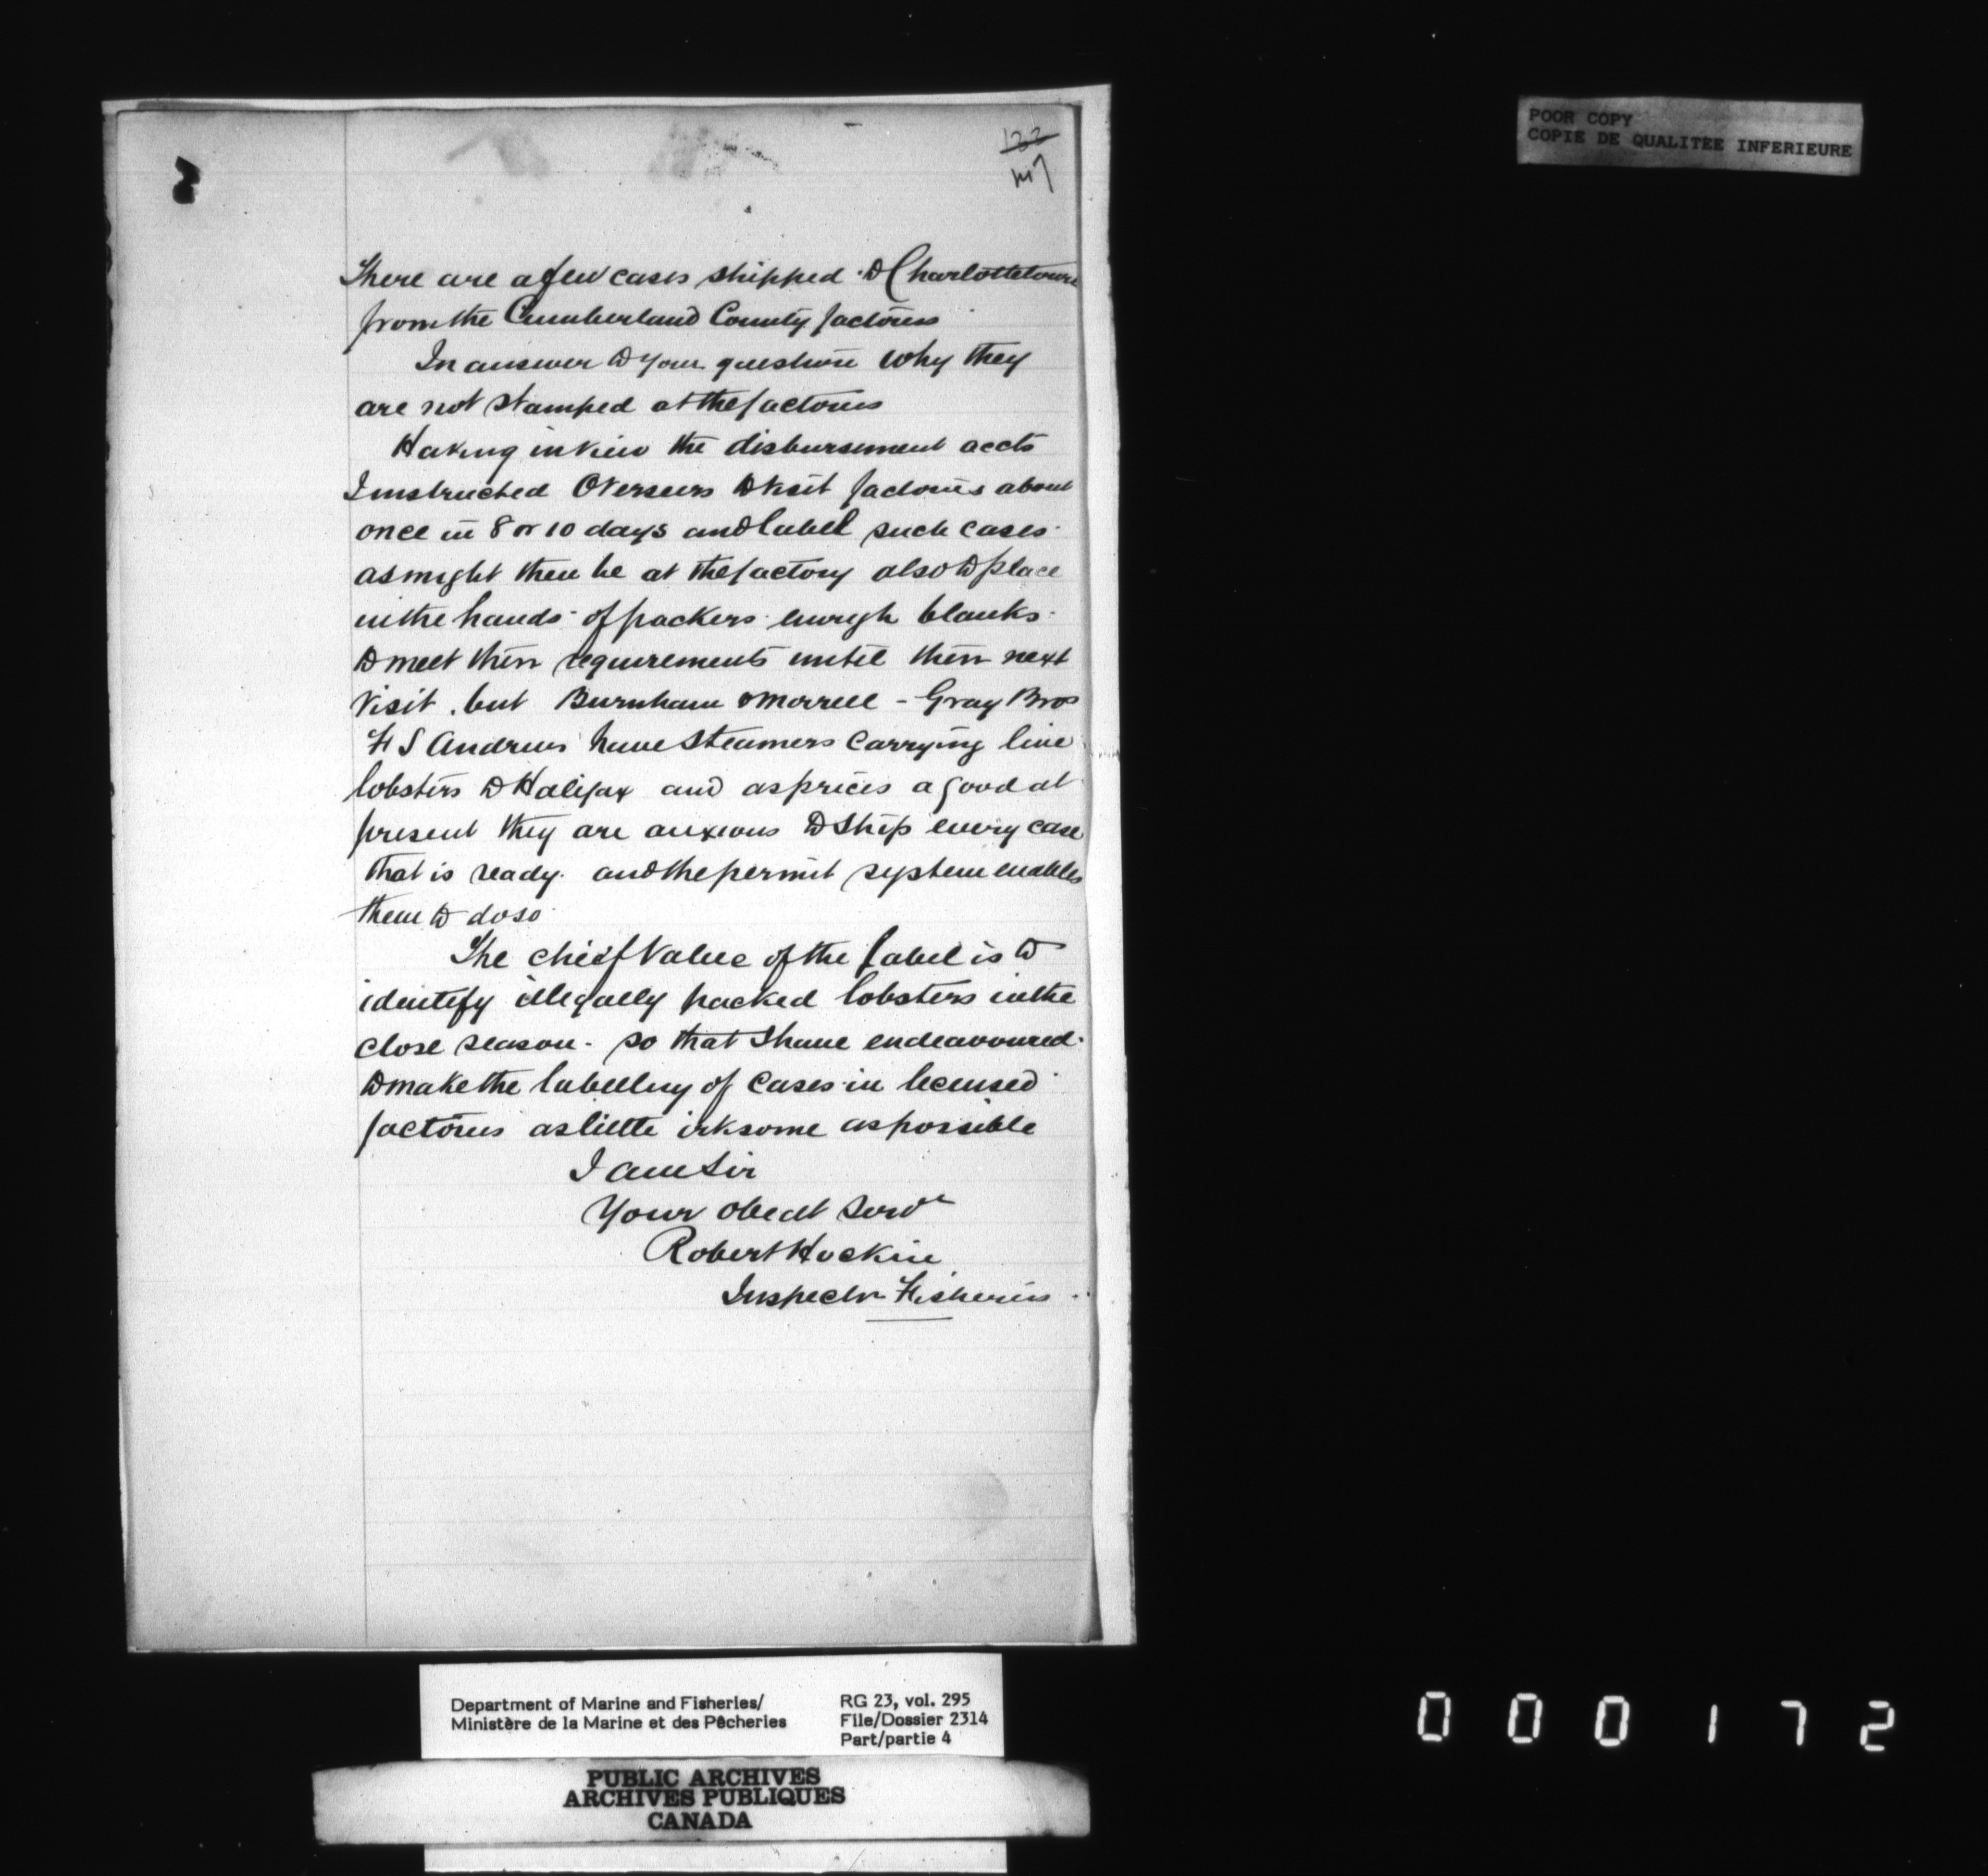 POOR COPY
COPIE DE QUALITEE INFERIEURE
There are a few cases shipped to Charlottetown
from the Cumberland County factories
In answer to your question why they
are not stamped at the factories
Having in view the disbursement accts
I instructed Overseers to visit factories about
once in 8 or 10 days and label such cases
as might then be at the factory also to place
in the hands of packers enough blanks
to meet their requirements until their next
visit. but Burnham & Morrell - Gray Bros
H S Andrews have steamers carrying live
lobsters to Halifax and as prices a good at
present they are anxious to ship every case
that is ready. and the permit system enables
them to do so
The chief value of the label is to
identify illegally packed lobsters in the
close season. so that I have endeavoured
to make the labelling of cases in licensed
factories as little irksome as possible
I am Sir
Your obedt Servt
Robert Hockin
Inspector Fisheries
Department of Marine and Fisheries/
Ministère de la Marine et des Pêcheries
RG 23, vol. 295
File/Dossier 2314
Part/partie 4
PUBLIC ARCHIVES
ARCHIVES PUBLIQUES
CANADA
000172